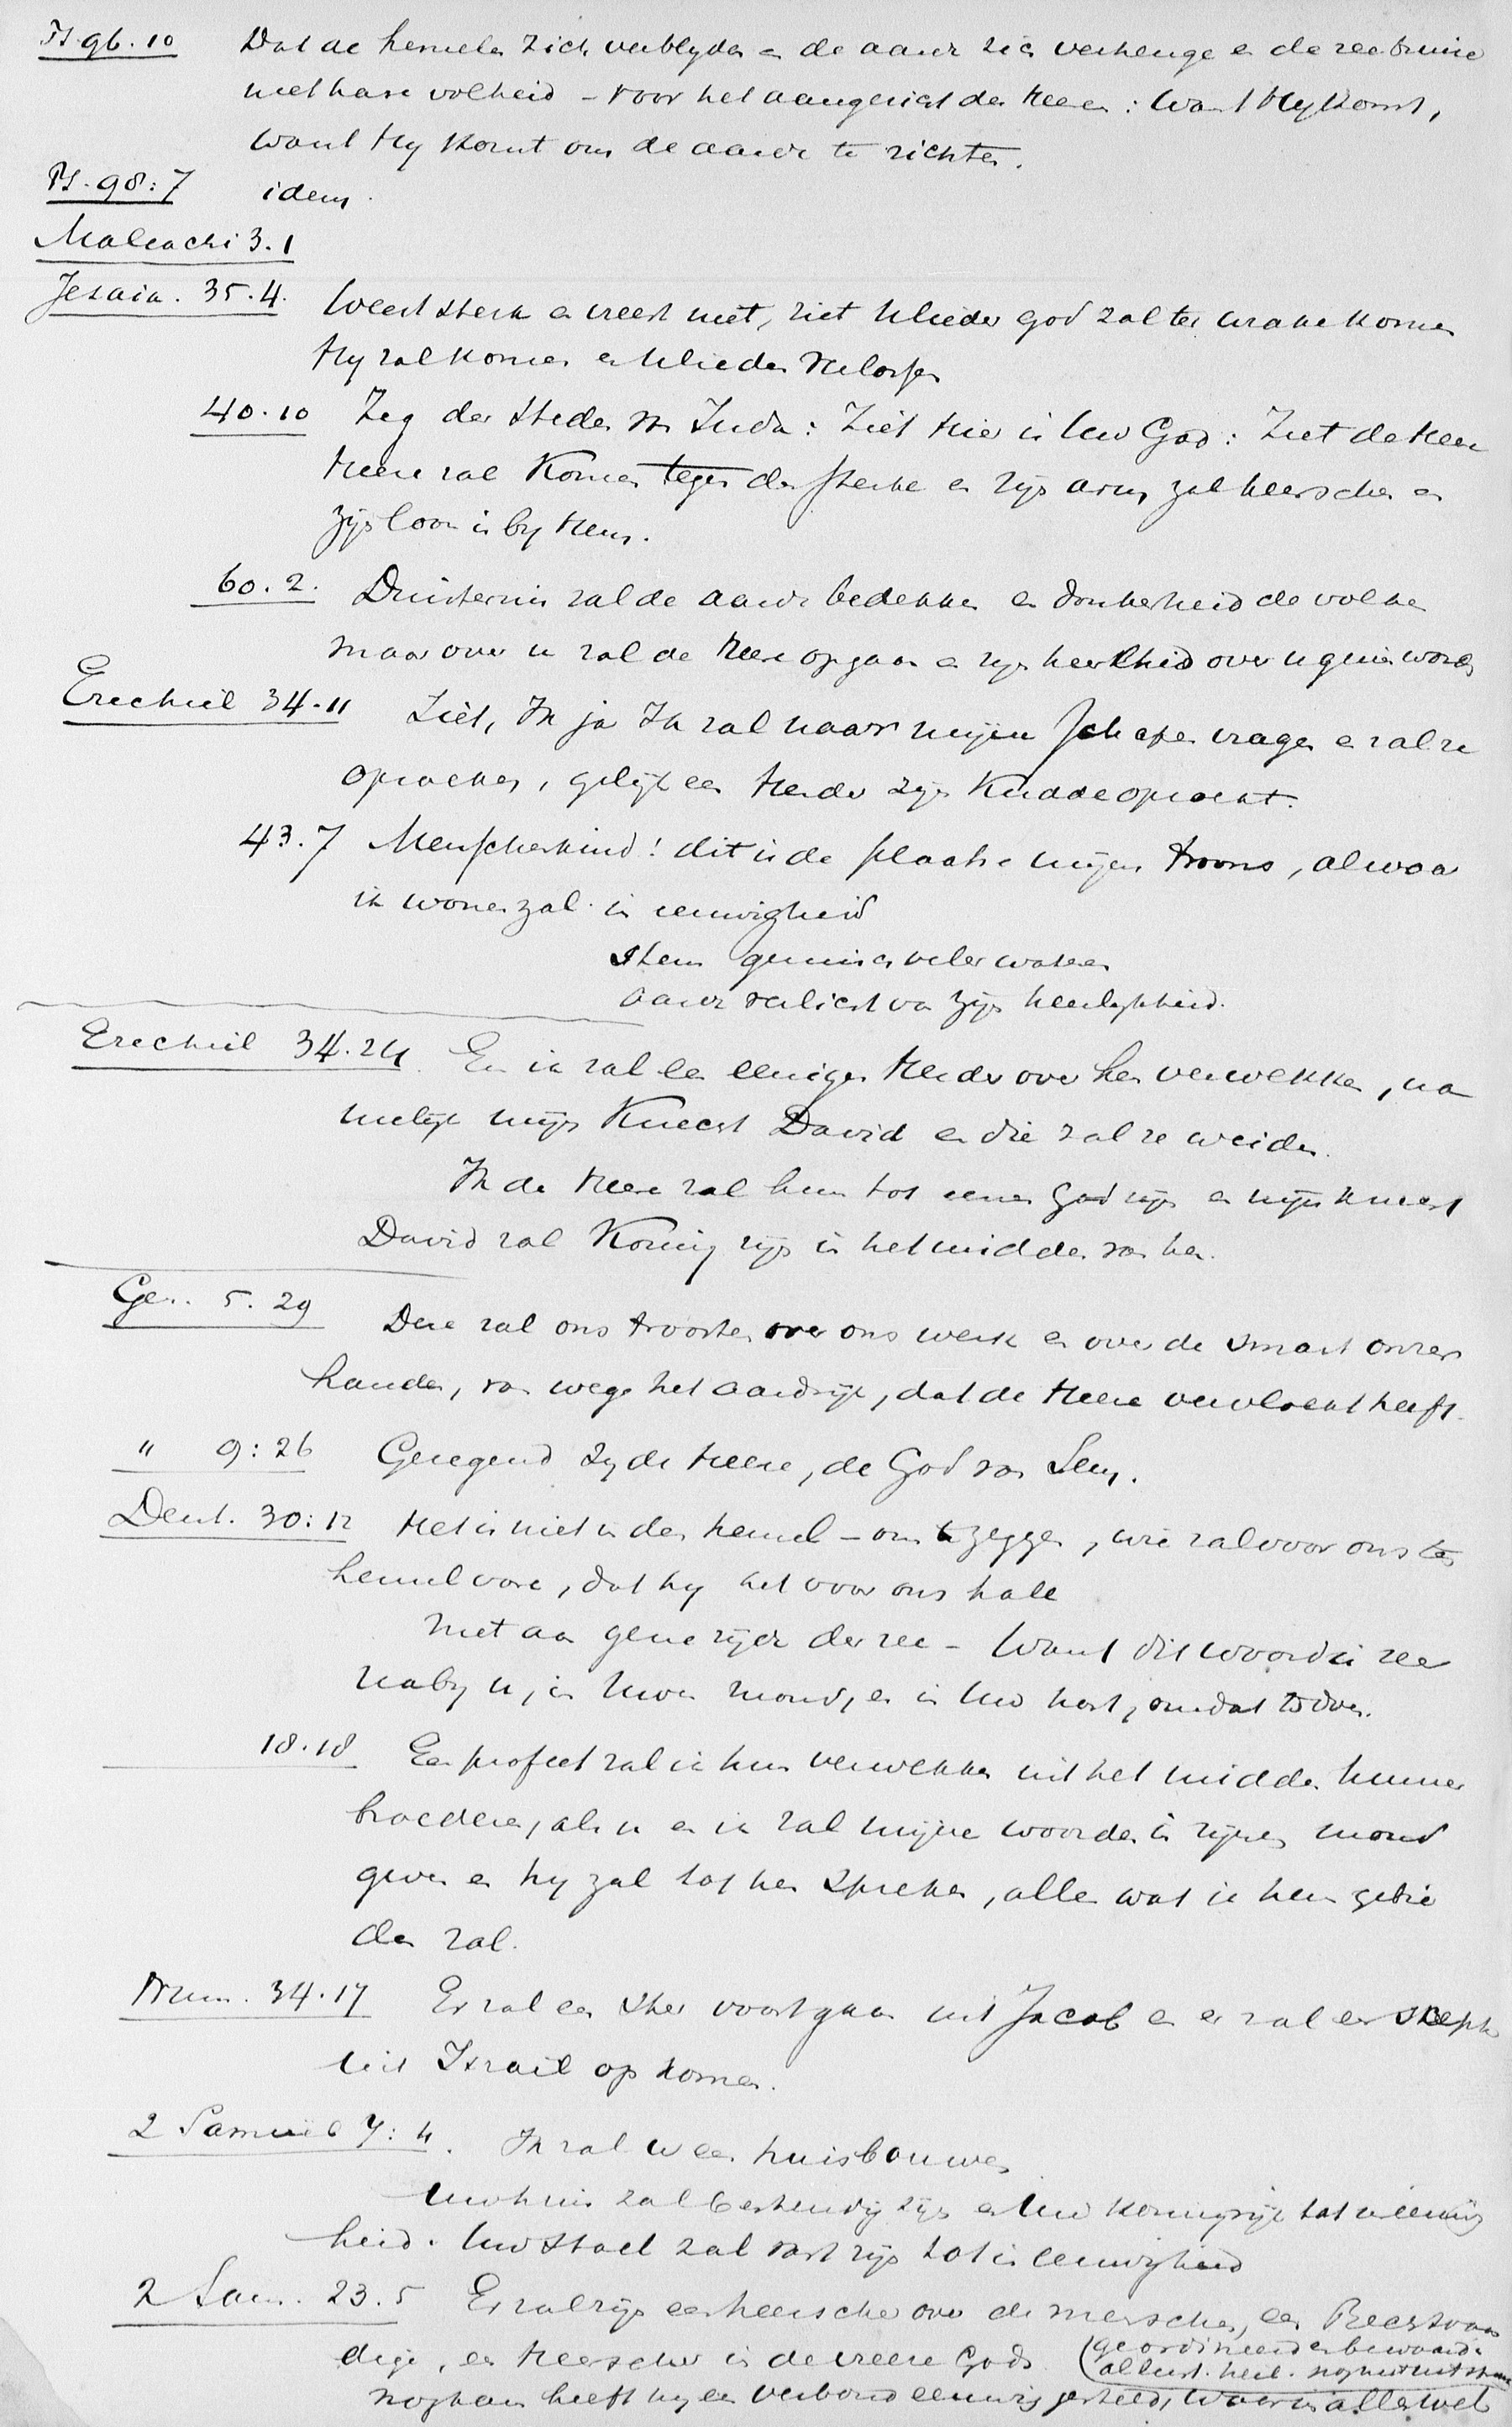 Ps. 96.10 Dat de hemelen zich verblyden en de aarde zich verheuge en de zee bruise
met hare volheid - voor het aangezicht des Heeren: Want Hy komt,
want Hy komt om de aarde te richten.
Ps. 98:7 idem.
Maleachi 3.1
Jesaia. 35.4. Weest sterk en vreest niet, ziet Ulieder God zal ter wrake komen
Hy zal komen en Ulieden verlossen
40.10 Zeg den steden van Juda: Ziet Hier is Uw God: Ziet de Heere
Heere zal komen tegen den sterke en zijn arm zal heerschen en
zijn loon is by Hem.
60.2. Duisternis zal de aarde bedekken en donkerheid de volken
maar over u zal de Heere opgaan en zijn heerlheid over u gezien worden
Ezechiel 34.11 Ziet, Ik ja Ik zal naar mijne schapen vragen en zal ze
opzoeken, gelijk een Herder zijn Kudde opzoekt.
43.7 Menschenkind! dit is de plaatse mijns troons, alwaar
ik wonen zal in eeuwigheid
Stem geruisch veler wateren
aarde verlicht van zijn heerlijkheid.
Ezechiel 34.24 En ik zal een eenigen Herder over hen verwekken, na
melijk mijn Knecht David en die zal ze weiden.
Ik de Heere zal hun tot eenen God zijn en mijn knecht
David zal Koning zijn in het midden van hen.
Gen. 5.29 Deze zal ons troosten over ons werk en over de smart onzer
handen, van wege het aardrijk, dat de Heere vervloekt heeft.
" 9:26 Gezegend zy de Heere, de God van Sem.
Deut. 30:12 Het is niet in den hemel - om te zeggen, wie zal voor ons ten
hemel varen, dat hy het voor ons hale
Niet aan gene zijde der zee - Want dit woord is zeer
naby u, in Uwen mond, en in Uw hart, om dat te doen.
18.18 Een profeet zal ik hun verwekken uit het midden hunner
broederen, als u en ik zal mijne woorden in zijnen mond
geven en hy zal tot hen spreken, alles wat ik hem gebie
den zal.
Num. 34.17 Er zal een ster voortgaan uit Jacob en er zal een scepter
uit Israël op komen.
2 Samuel 7:11. Ik zal u een huis bouwen
Uw huis zal bestendig zijn en Uw koningrijk tot in eeuwig
heid. Uw stoel zal vast zijn tot in eeuwigheid
2 Sam. 23.5 Er zal zijn een heerscher over de menschen, een Rechtvaar
dige, een Heerscher in de vreeze Gods (geordineerd en bewaard is
(alle lust. heil. nog niet uitspr
nogtans heeft hy een verbond eeuwig gesteld, waarin alles wel